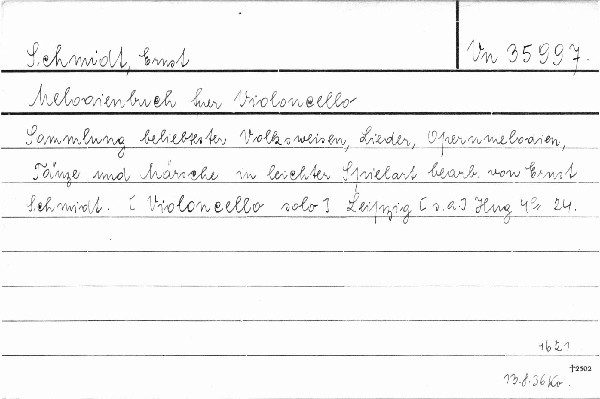 Schmidt, Ernst
Vn 35997.
Melodienbuch fuer Violoncello
Sammlung beliebtester Volksweisen, Lieder, Opernmelodien,
Tänze und Märsche in leichter Spielart bearb. von Ernst
Schmidt. [Violoncello solo] Leipzig [s.a.] Hug 4° 24.
1621
13.8.36 Ko.
†2502